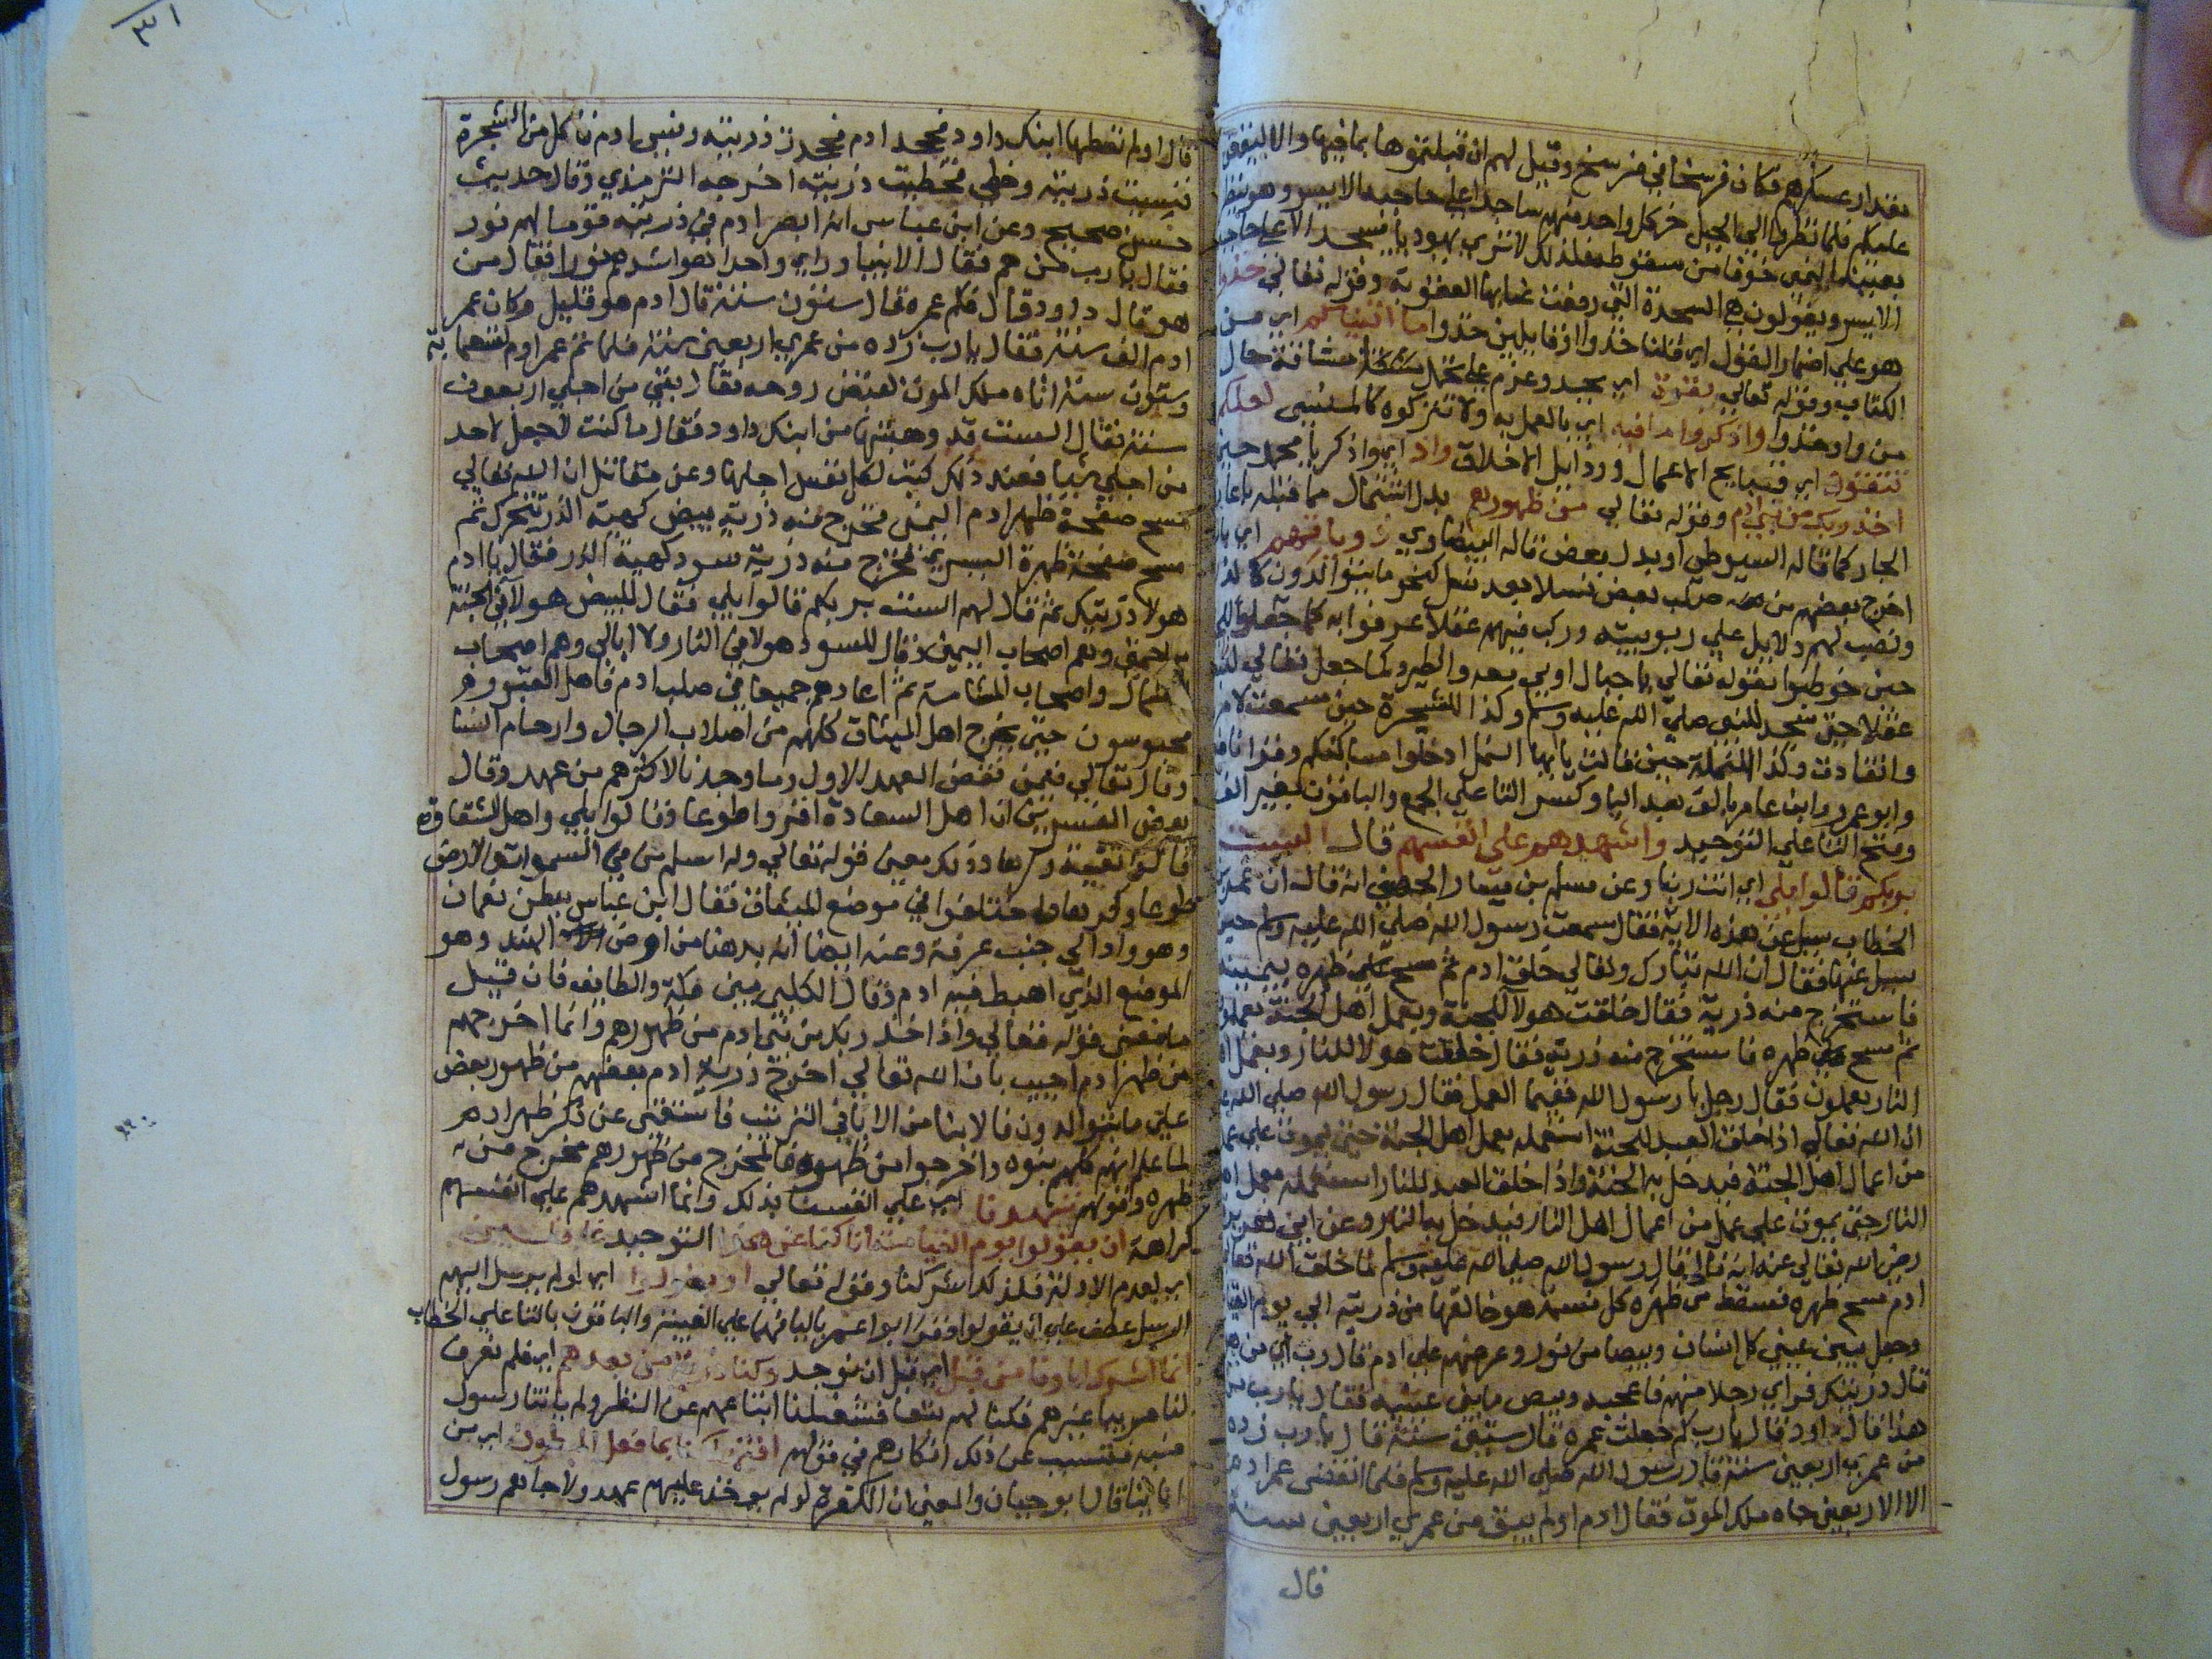 بقدار عسكرهم فكان فرسخا في فرسخ وقيل لهم ان قبلتموها بما فيها والا ليقعن
عليكم فلما نظروا الي الجبل خر كل واحد منهم ساجدا علي حاجبه الايسر وهو ينظر
بعينه اليمني خوفا من سقوطه فلذلك لا تري يهوديا يسجد الا علي حاجبه
الايسر ويقولون هي السجدة التي رفعت عنا بها العقوبة وقوله تعالي خذوا
هو علي اضمار القول اي قلنا خذوا او قايلين خذوا ما اتيناكم اي من
الكتاب وقوله تعالي بقوة اي بجد وعزم علي تحمل مشاقه حال
من واو خذوا واذكروا ما فيه اي بالعمل به ولا تتركوه كالمنسي لعلكم
تتقون اي قبايح الاعمال ورذايل الاخلاق واذ اي واذكر يا محمد حين
اخذ ربك من بني ادم وقوله تعالي من ظهورهم بدل اشتمال مما قبله باعادة
الجار كما قاله السيوطي او بدل بعض قاله البيضاوي ذرياتهم اي بان
اخرج بعضهم من صلب بعض نسلا بعد نسل كنحو ما يتوالدون كالذر
ونصب لهم دلايل علي ربوبيته وركب فيهم عقلا عرفوا به كما جعل للجبال
حين خوطبوا بقوله تعالي يا جبال اوبي معه والطير وكما جعل تعالي للبعير
عقلا حتي سجد للنبي صلي الله عليه وسلم وكذا للشجرة حين سمعت لامره
وانقادت وكذا للنملة حين قالت يا ايها النمل ادخلوا مساكنكم وقرا نافع
وابو عمرو وابن عامر بالف بعد اليا وكسر التا علي الجمع والباقون بغير الف
وفتح التا علي التوحيد واشهدهم علي انفسهم قال الست
بربكم قالوا بلي اي انت ربنا وعن مسلم بن يسار الجهني انه قال ان عمر بن
الخطاب سيل عن هذه الاية فقال سمعت رسول الله صلي الله عليه وسلم حين
سيل عنها فقال ان الله تبارك وتعالي خلق ادم ثم مسح علي ظهره بيمينه
فاستخرج منه ذرية فقال خلقت هولا للجنة وبعمل اهل الجنة يعملون
ثم مسح ظهره فاستخرج منه ذرية فقال خلقت هولا للنار وبعمل اهل
النار يعملون فقال رجل يا رسول الله ففيما العمل فقال رسول الله صلي الله عليه
ان الله تعالي اذا خلق العبد للجنة استعمله بعمل اهل الجنة حتي يموت علي عمل
من اعمال اهل الجنة فيدخل به الجنة واذا خلق العبد للنار استعمله بعمل اهل
النار حتي يموت علي عمل من اعمال اهل النار فيدخل به النار وعن ابي هريرة
رضي الله تعالي عنه انه قال قال رسول الله صلي الله عليه وسلم لما خلق الله تعالي
ادم مسح ظهره فسقط من ظهره كل نسمة هو خالقها من ذريته الي يوم القيامة
وجعل بين عيني كل انسان وبيصا من نور وعرضهم علي ادم قال رب اي من هولا
قال ذريتك فراي رجلا منهم فاعجبه وبيص ما بين عينيه فقال يا رب من
هذا قال داود قال يا رب كم جعلت عمره قال ستين سنة قال يا رب زده
من عمري اربعين سنة قال رسول الله صلي الله عليه وسلم فلما انقضي عمر ادم
الا الاربعين جاه ملك الموت فقال ادم اولم يبق من عمري اربعين سنة
قال
٣١
قال اولم تعطها ابنك داود فجحد ادم فجحدت ذريته ونسي ادم فاكل من الشجرة
فنسيت ذريته وخطي فخطيت ذريته اخرجه الترمذي وقال حديث
حسن صحيح وعن ابن عباس انه ابصر ادم في ذريته قوما لهم نور
فقال يا رب من هم فقال الانبيا وراي واحدا هو اشدهم نورا فقال من
هو قال داود قال فكم عمره قال ستون سنة قال ادم هو قليل وكان عمر
ادم الف سنة فقال يا رب زده من عمري اربعين سنة فلما تم عمر ادم تسعماية
وستون سنة اتاه ملك الموت لقبض روحه فقال بقي من اجلي اربعون
سنة فقال الست قد وهبتها من ابنك داود فقال ما كنت لاجعل لاحد
من اجلي شيا فعند ذلك كتب لكل نفس اجلها وعن مقاتل ان الله تعالي
مسح صفحة ظهر ادم اليمني فخرج منه ذرية بيض كهيئة الذر تتحرك ثم
مسح صفحة ظهره اليسري فخرج منه ذرية سود كهيئة الذر فقال يا ادم
هولا ذريتك ثم قال لهم الست بربكم قالوا بلي فقال للبيض هولا في الجنة
برحمتي وهم اصحاب اليمين وقال للسود هولا في النار ولا ابالي وهم اصحاب
الشمال واصحاب المشامة ثم اعادهم جميعا في صلب ادم فاهل القبور
محبوسون حتي يخرج اهل الميثاق كلهم من اصلاب الرجال وارحام النسا
وقال تعالي فيمن نقض العهد الاول وما وجدنا لاكثرهم من عهد وقال
بعض المفسرين ان اهل السعادة اقروا طوعا وقالوا بلي واهل الشقاوة
قالوا تقية وكرها وذلك معني قوله تعالي وله اسلم من في السموات والارض
طوعا وكرها واختلفوا في موضع الميثاق فقال ابن عباس ببطن نعمان
وهو واد الي جنب عرفة وعنه ايضا انه بدهنا من ارض الهند وهو
الموضع الذي اهبط فيه ادم وقال الكلبي بين مكة والطايف فان قيل
ما معني قوله تعالي واذ اخذ ربك من بني ادم من ظهورهم وانما اخرجهم
من ظهر ادم اجيب بان الله تعالي اخرج ذرية ادم بعضهم من ظهور بعض
علي ما يتوالدون فالابنا من الابا في الترتيب فاستغني عن ذكر ظهر ادم
لما علم انهم كلهم بنوه واخرجوا من ظهره فالمخرج من ظهورهم مخرج من
ظهره وقولهم شهدنا اي علي انفسنا بذلك وانما اشهدهم علي انفسهم
كراهة ان يقولوا يوم القيامة انا كنا عن هذا التوحيد غافلين
اي لعدم الادلة فلذلك اشركنا وقوله تعالي او يقولوا اي لو لم يرسل اليهم
الرسل عطف علي ان يقولوا وقرا ابو عمرو باليا فيها علي الغيبة والباقون بالتا علي الخطاب
انما اشرك اباونا من قبل اي قبل ان نوجد وكنا ذرية من بعدهم اي فلم نعرف
لنا مربيا غيرهم فكنا لهم تبعا فشغلنا اتباعهم عن النظر ولم ياتنا رسول
منبه فتسبب عن ذلك انكارهم في قولهم افتهلكنا بما فعل المبطلون اي من
ابائنا قال ابو حيان والمعني ان الكفرة لو لم يوخذ عليهم عهد ولا جاهم رسول